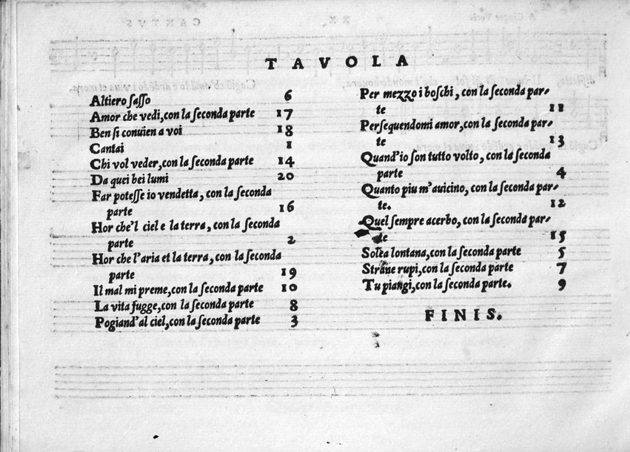 TAVOLA
Altiero sasso 6
Amor che vedi, con la seconda parte 17
Ben si conuien a voi 18
Cantai 1
Chi vol veder, con la seconda parte 14
Da quei bei lumi 20
Far potesse io vendetta, con la seconda
parte 16
Hor che'l ciel e la terra, con la seconda
parte 2
Hor che l'aria et la terra, con la seconda
parte 19
Il mal mi preme, con la seconda parte 10
La vita fugge, con la seconda parte 8
Pogiand'al ciel, con la seconda parte 3
Per mezzo i boschi, con la seconda par-
te 11
Perseguendomi amor, con la seconda par-
te 13
Quand'io son tutto volto, con la seconda
parte 4
Quanto piu m'auicino, con la seconda par-
te. 12
Quel sempre acerbo, con la seconda par-
te 15
Solea lontana, con la seconda parte 5
Strane rupi, con la seconda parte 7
Tu piangi, con la seconda parte. 9
FINIS.